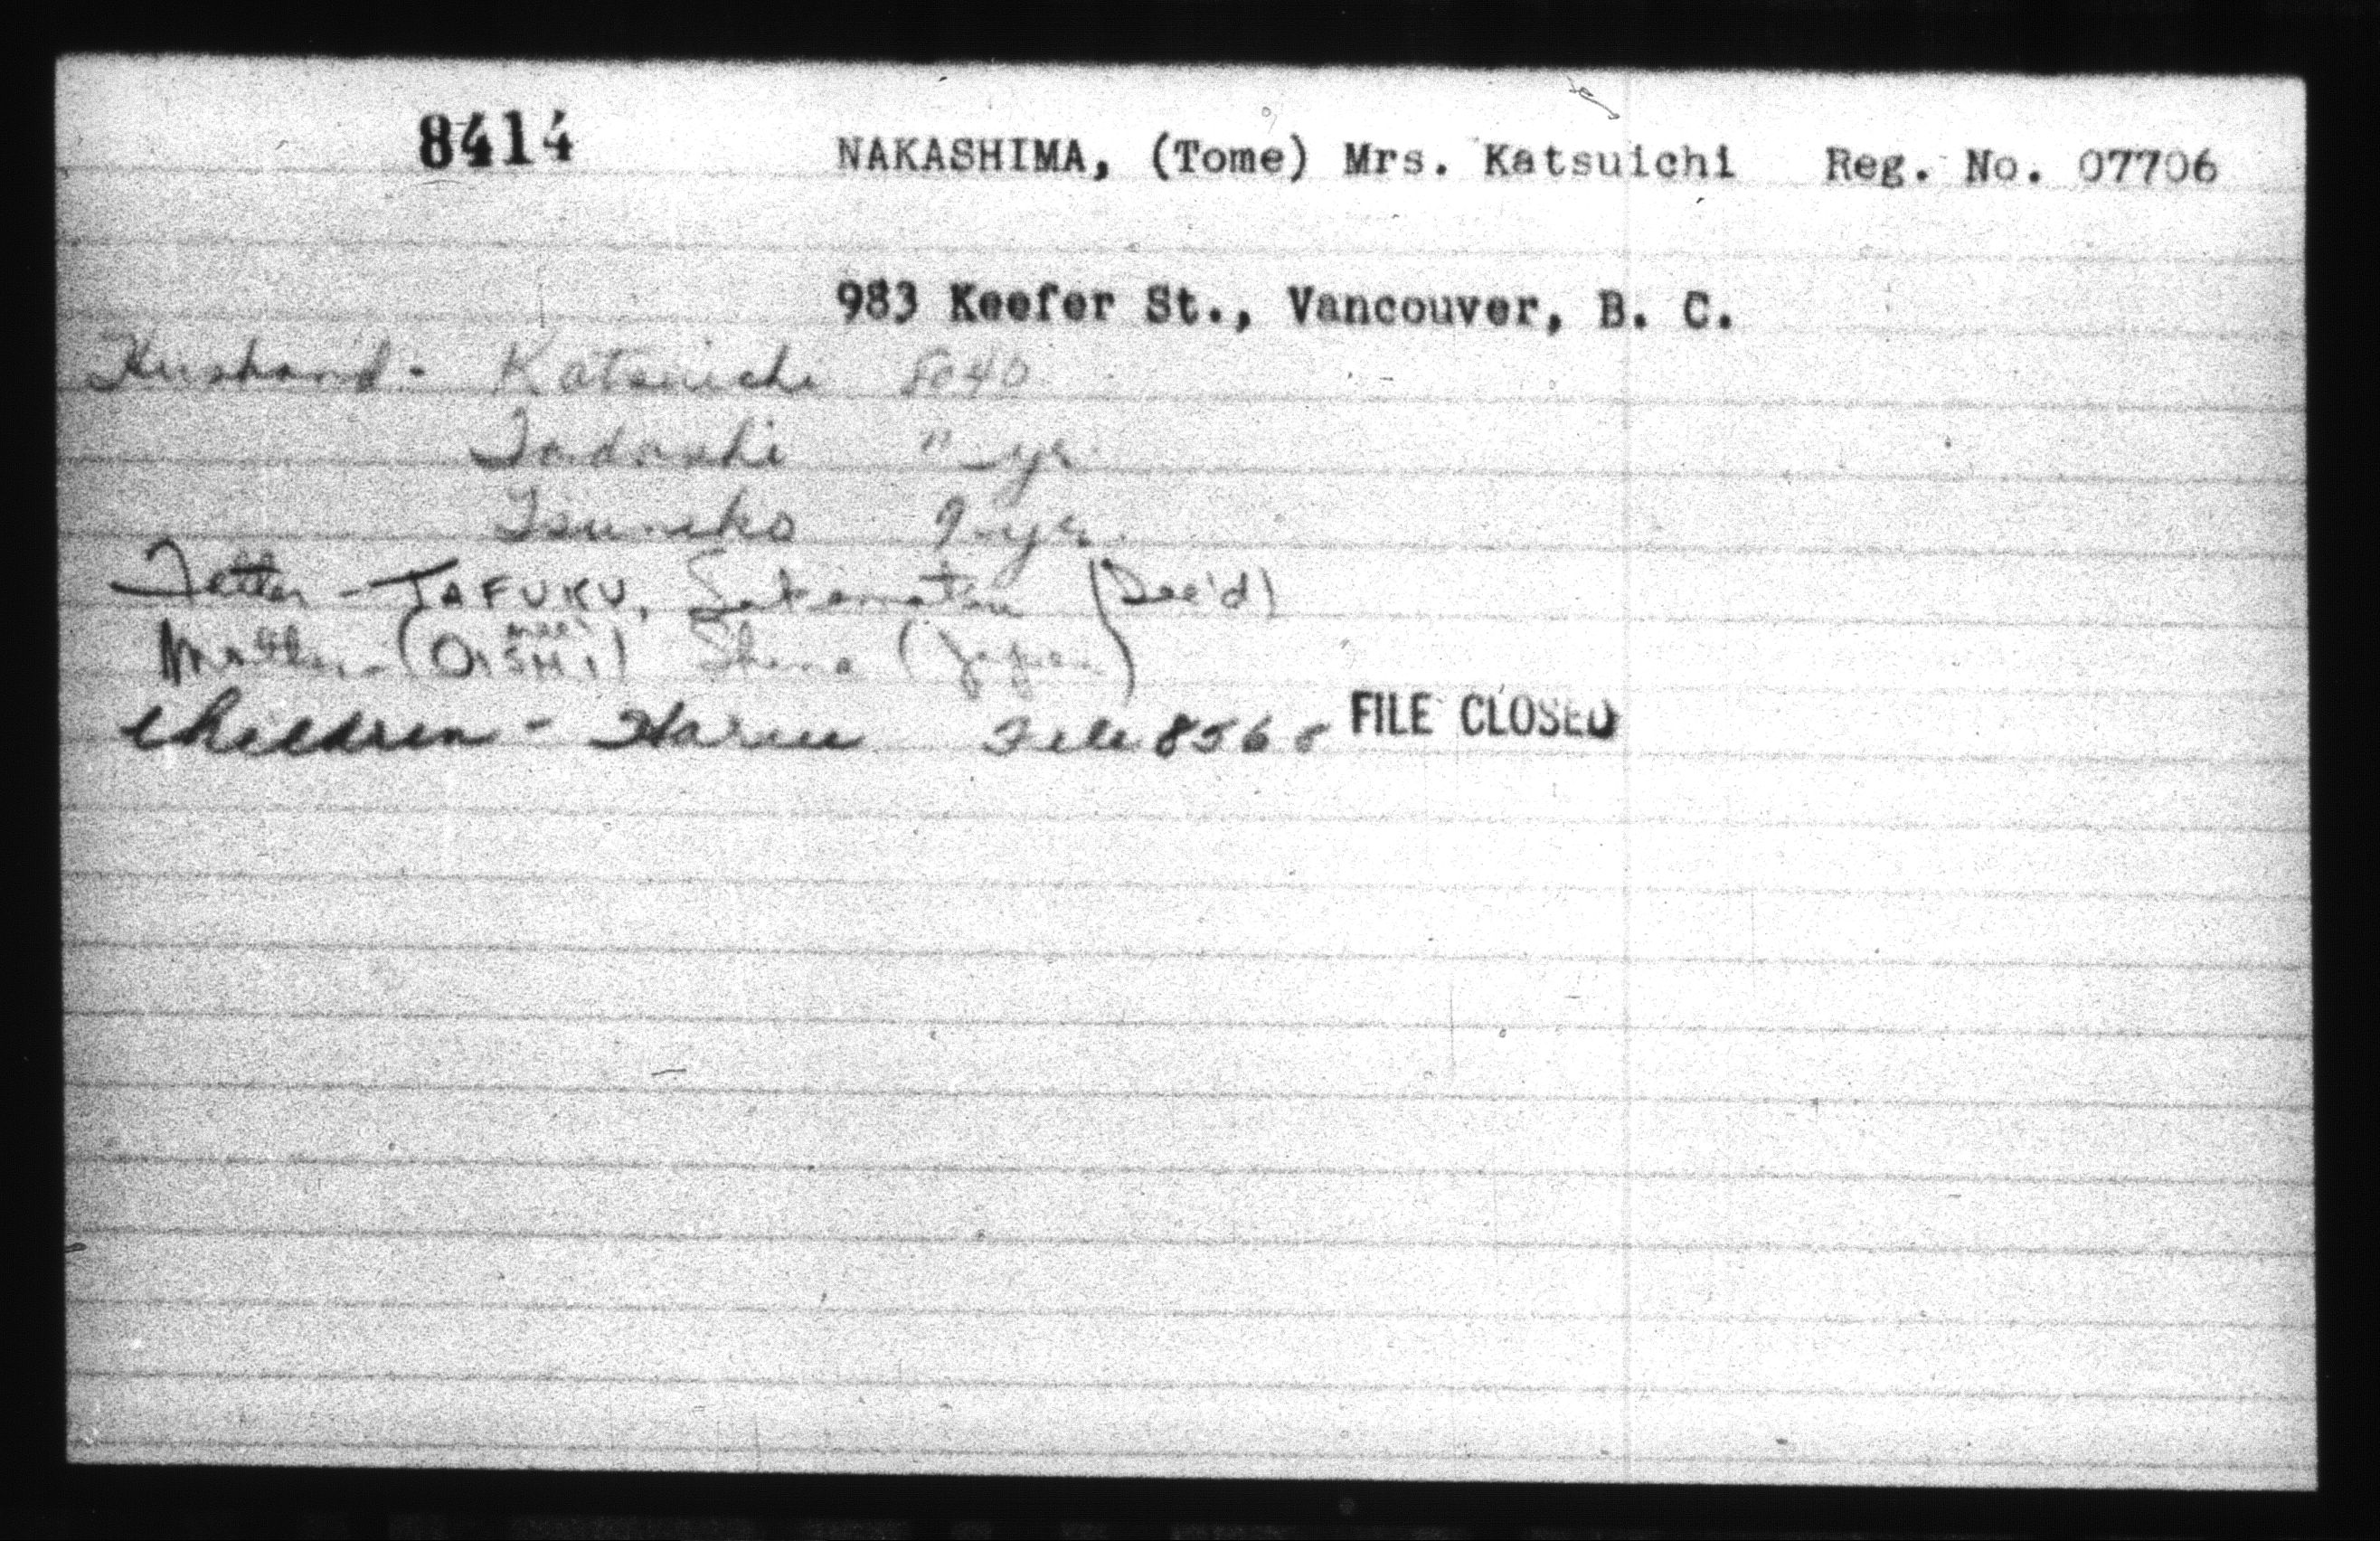 8414 NAKASHIMA, (Tome) Mrs. Katsuichi Reg. No. 07706
983 Keefer St., Vancouver, B. C.
Husband - Katsuichi 8040
Tadashi 11-yr.
Tsuneko 9-yr.
Father - TAFUKU, (Dec'd)
nee
Mother - (OISHI) (Japan)
Children - Harue File 8568 FILE CLOSED